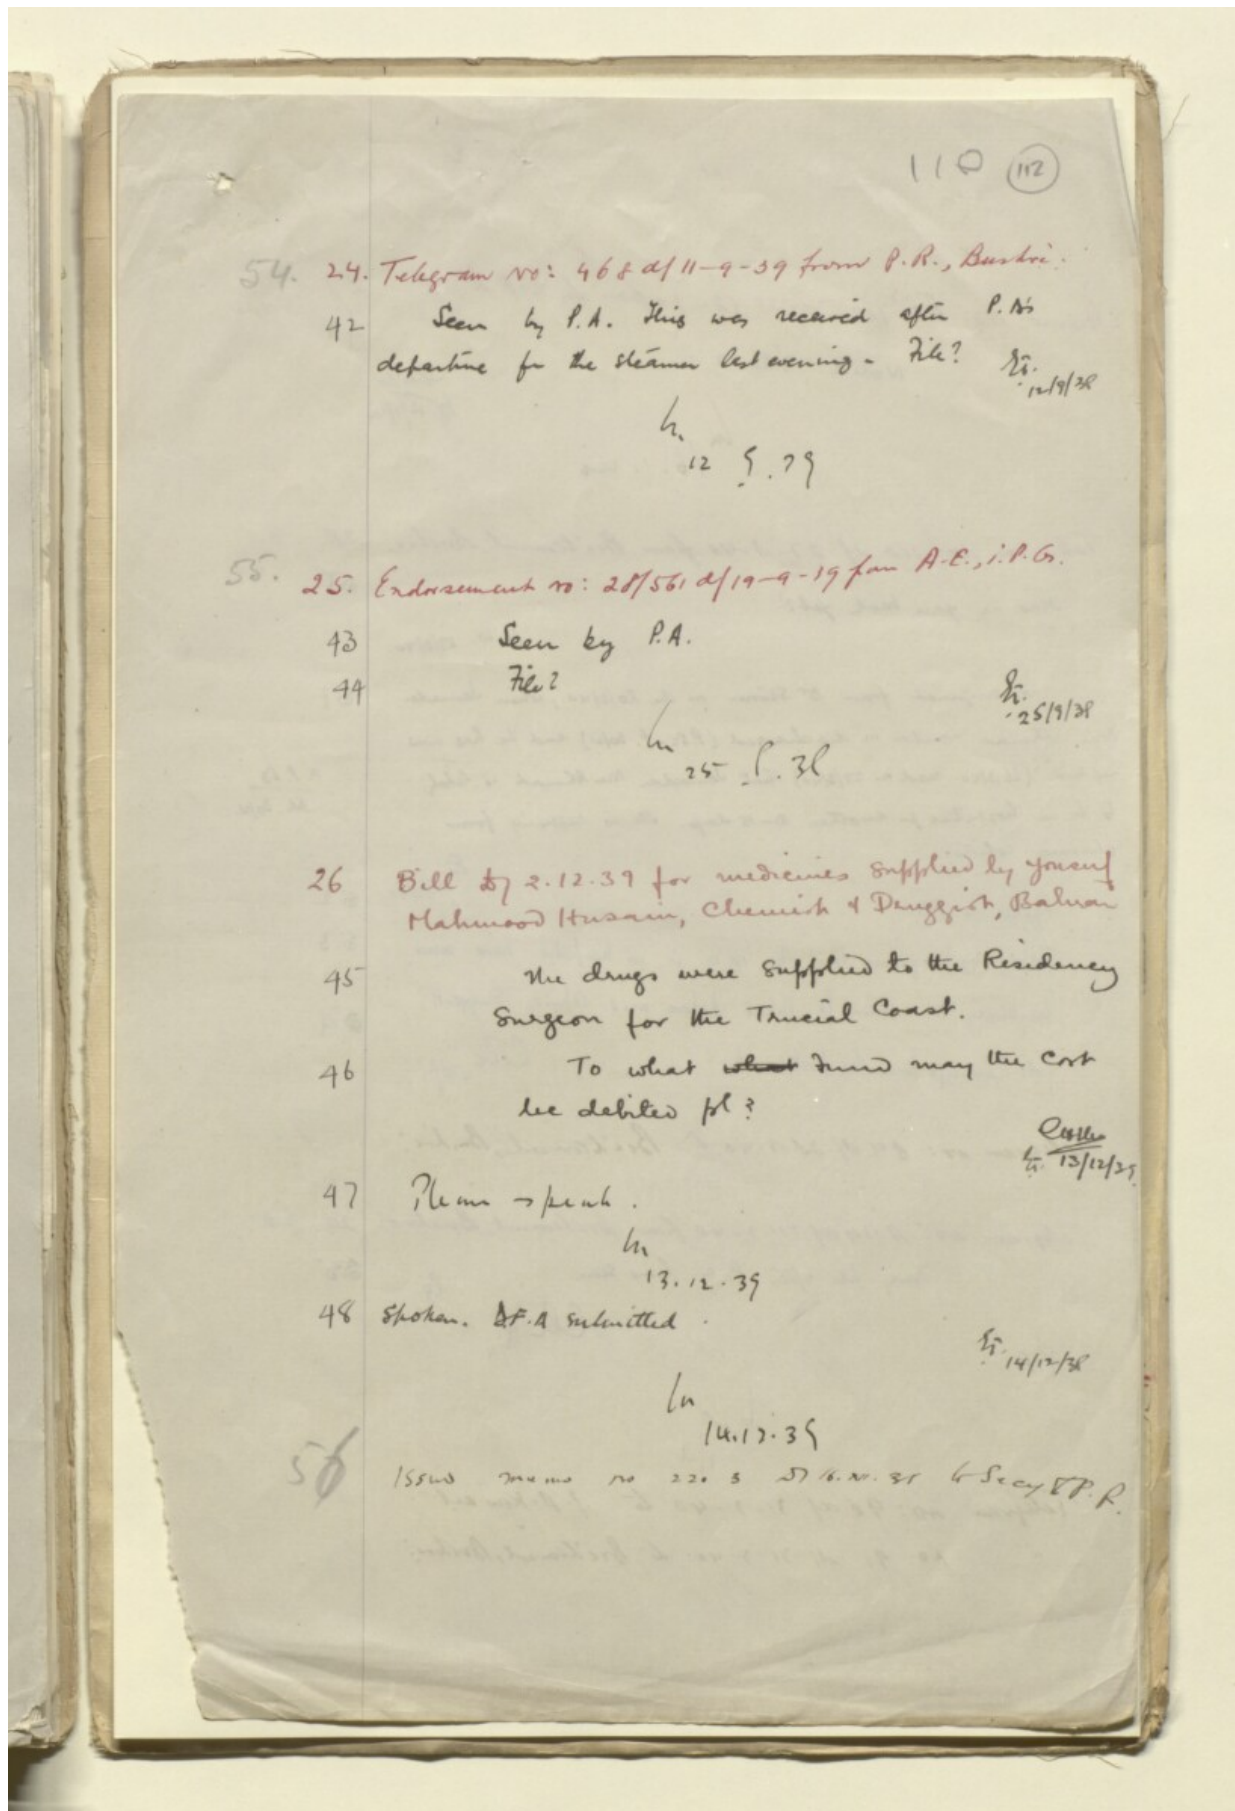 110 112
54. 24. Telegram no: 468 d/ 11-9-39 from P.R., Bushire.
42 Seen by P.A. This was received after P.A's
departure for the steamer last evening - File?
12/9/39
12 9.39
55. 25. Endorsement no: 28/561 d/ 19-9-39 from A.E., i.P.G.
43 Seen by P.A.
44 File?
25/9/39
25 9.39
26 Bill d/ 2.12.39 for medicines supplied by Yousuf
Mahmood Husain, Chemist & Druggist, Bahrain
45 The drugs were supplied to the Residency
Surgeon for the Trucial Coast.
46 To what what Fund may the cost
be debited pl?
13/12/39
47 Please speak.
13.12.39
48 Spoken. D.F.A submitted.
14/12/39
14.12.39
56 Issued memo no 2203 d/ 16.12.39 to Secy P.R.